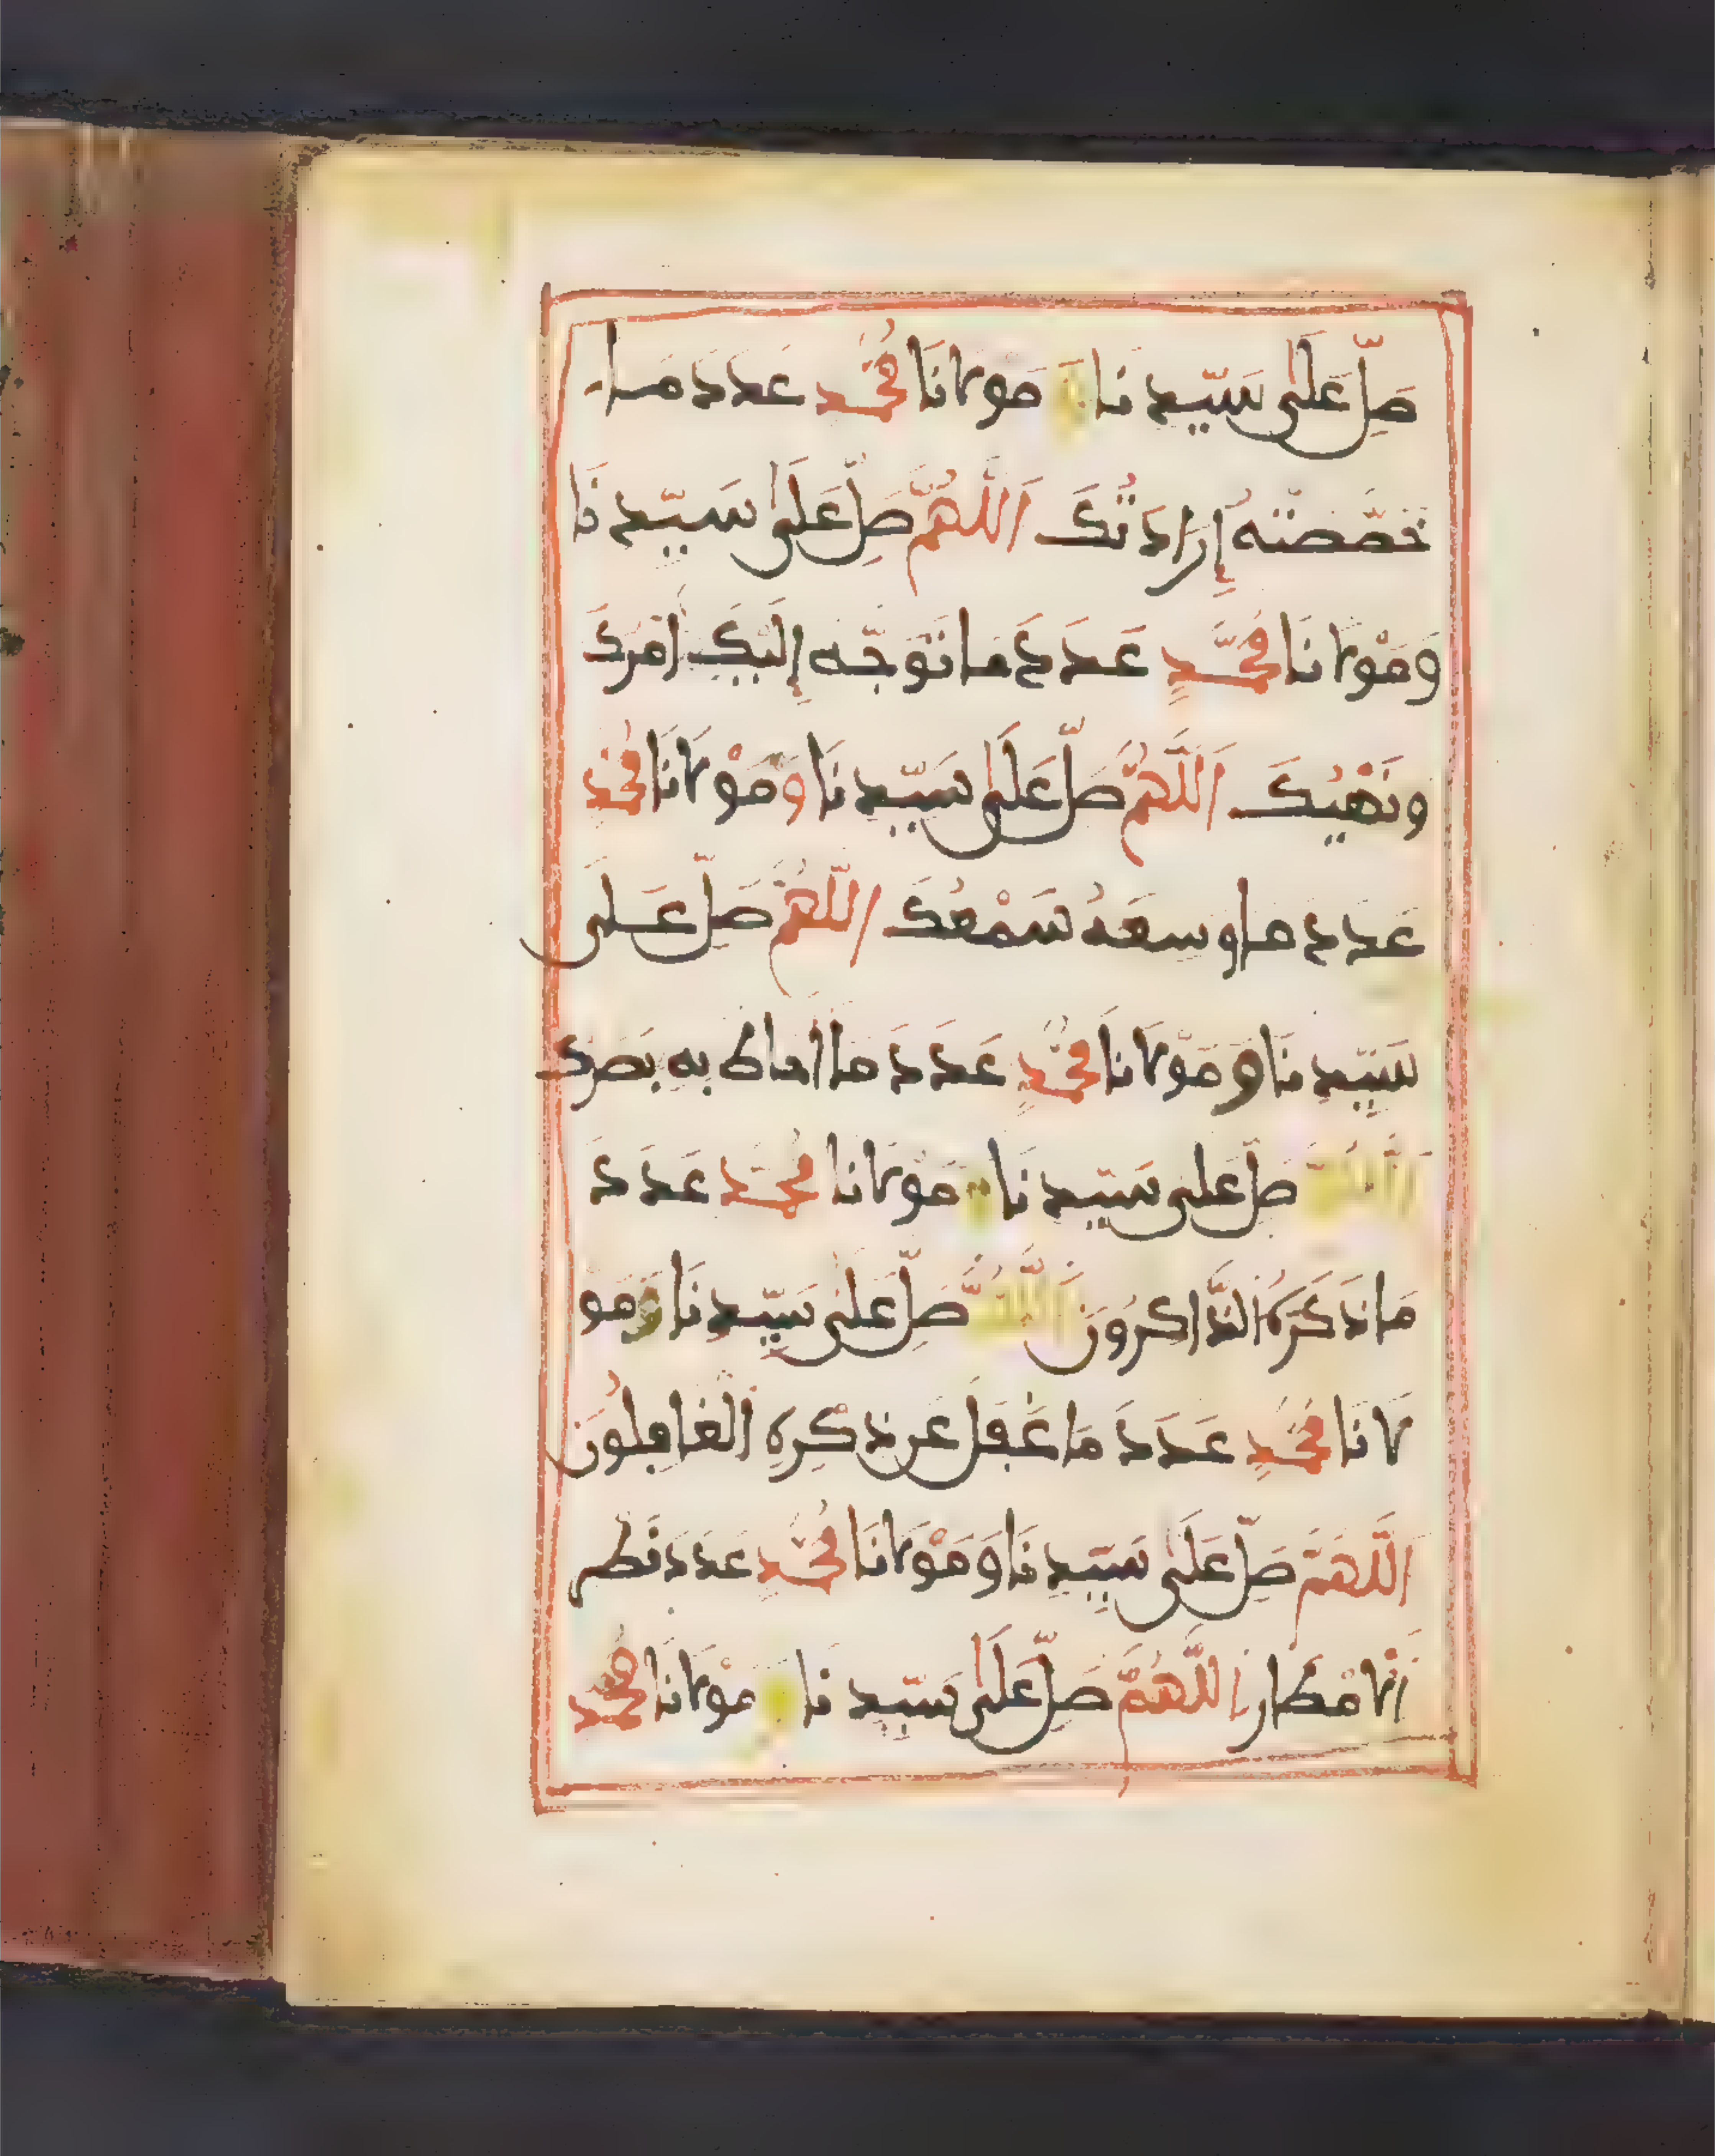 صَلِّ عَلَى سَيِّدِنَا وَ مَوْلَانَا مُحَمَّدٍ عَدَدَ مَا
خَصَّصَتْهُ إِرَادَتُكَ اَللَّهُمَّ صَلِّ عَلَى سَيِّدِنَا
وَمَوْلَانَا مُحَمَّدٍ عَدَدَ مَا تَوَجَّهَ إِلَيْكَ أَمْرُكَ
وَنَهْيُكَ اَللَّهُمَّ صَلِّ عَلَى سَيِّدِنَا وَمَوْلَانَا مُحَمَّدٍ
عَدَدَ مَا وَسِعَهُ سَمْعُكَ اللَّهُمَّ صَلِّ عَلَى
سَيِّدِنَا وَمَوْلَانَا مُحَمَّدٍ عَدَدَ مَا أَحَاطَ بِهِ بَصَرُكَ
اَللَّهُمَّ صَلِّ عَلَى سَيِّدِنَا وَمَوْلَانَا مُحَمَّدٍ عَدَدَ
مَا ذَكَرَهُ الذَّاكِرُونَ اَللَّهُمَّ صَلِّ عَلَى سَيِّدِنَا وَمَوْ
لَانَا مُحَمَّدٍ عَدَدَ مَا غَفَلَ عَن ذِكْرِهِ الْغَافِلُونَ
اَللَّهُمَّ صَلِّ عَلَى سَيِّدِنَا وَمَوْلَانَا مُحَمَّدٍ عَدَدَ قَطْرِ
اَلْأَمْطَارِ اَللَّهُمَّ صَلِّ عَلَى سَيِّدِنَا وَ مَوْلَانَا مُحَمَّدٍ